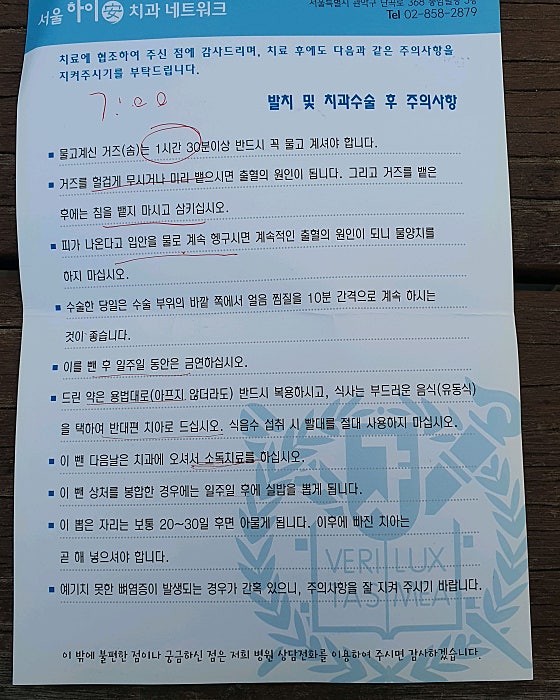 서울 하이安 치과 네트워크
서울특별시 관악구 난곡로 368
Tel 02-858-2879
치료에 협조하여 주신 점에 감사드리며, 치료 후에도 다음과 같은 주의사항을
지켜주시기를 부탁드립니다.
7:00
발치 및 치과수술 후 주의사항
■ 물고계신 거즈(솜)는 1시간 30분이상 반드시 꼭 물고 계셔야 합니다.
■ 거즈를 헐겁게 무시거나 미리 뱉으시면 출혈의 원인이 됩니다. 그리고 거즈를 뱉은
후에는 침을 뱉지 마시고 삼키십시오.
■ 피가 나온다고 입안을 물로 계속 헹구시면 계속적인 출혈의 원인이 되니 물양치를
하지 마십시오.
■ 수술한 당일은 수술 부위의 바깥 쪽에서 얼음 찜질을 10분 간격으로 계속 하시는
것이 좋습니다.
■ 이를 뺀 후 일주일 동안은 금연하십시오.
■ 드린 약은 용법대로(아프지 않더라도) 반드시 복용하시고, 식사는 부드러운 음식(유동식)
을 택하여 반대편 치아로 드십시오. 식음수 섭취 시 빨대를 절대 사용하지 마십시오.
■ 이 뺀 다음날은 치과에 오셔서 소독치료를 하십시오.
■ 이 뺀 상처를 봉합한 경우에는 일주일 후에 실밥을 뽑게 됩니다.
■ 이 뽑은 자리는 보통 20~30일 후면 아물게 됩니다. 이후에 빠진 치아는
곧 해 넣으셔야 합니다.
■ 예기치 못한 뼈염증이 발생되는 경우가 간혹 있으니, 주의사항을 잘 지켜 주시기 바랍니다.
VERI LUX
TAS MEA
이 밖에 불편한 점이나 궁금하신 점은 저희 병원 상담전화를 이용하여 주시면 감사하겠습니다.